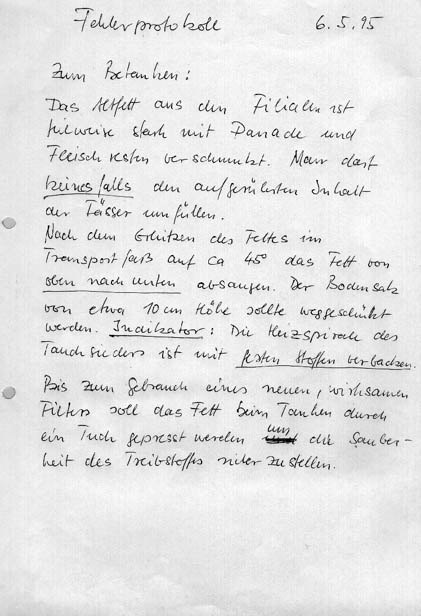 Fehlerprotokoll 6.5.95
Zum Betanken:
Das Altfett aus den Filialen ist
teilweise stark mit Panade und
Fleischresten verschmutzt. Man darf
keinesfalls den aufgerührten Inhalt
der Fässer umfüllen.
Nach dem Erhitzen des Fettes im
Transportfaß auf ca 45° das Fett von
oben nach unten absaugen. Der Bodensatz
von etwa 10 cm Höhe sollte weggeschüttet
werden. Indikator: Die Heizspirale des
Tauchsieders ist mit festen Stoffen verbacken.
Bis zum Gebrauch eines neuen, wirksamen
Filters soll das Fett beim Tanken durch
ein Tuch gepresst werden um die Sauber-
heit des Treibstoffs sicherzustellen.